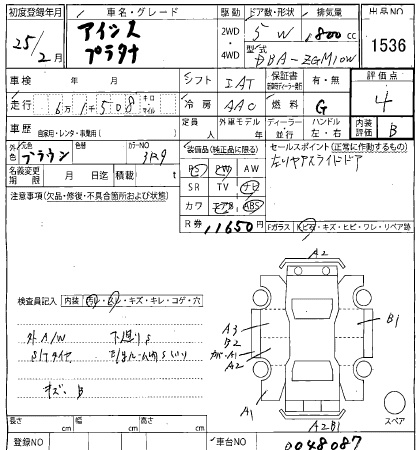 初度登録年月 車名・グレード 駆動 ドア数・形状 排気量 出品NO
25/2月 アイシス プラタナ 2WD・4WD 5 W 1,800cc 1536
型式 DBA-ZGM10W
車検 年 月 シフト IAT 保証書 有・無 評価点
走行 6万1千508 キロ マイル 冷房 AAC 燃料 G 4
車歴 自家用・レンタ・事業用( ) 定員 人 外車モデル 年 ディーラー 並行 ハンドル 左・右 内装評価 B
外色 元色 ブラウン 色替 カラーNO 3R9 装備品(純正品に限る) セールスポイント(正常に作動するもの)
名義変更期限 月 日迄 積載( )t PS PW AW 左リヤスライドドア
注意事項(欠品・修復・不具合箇所および状態) SR TV ナビ
カワ エアB ABS
R券 11650円 Fガラス
A2
検査員記入 内装 汚レ・スレ・キズ・キレ・コゲ・穴
外A/W 下廻りS
S/Tタイヤ
オズ、B
A3 B2 A2
B1
A1
A2B1
スペア
長さ cm 幅 cm 高さ cm
登録NO 車台NO 0048087